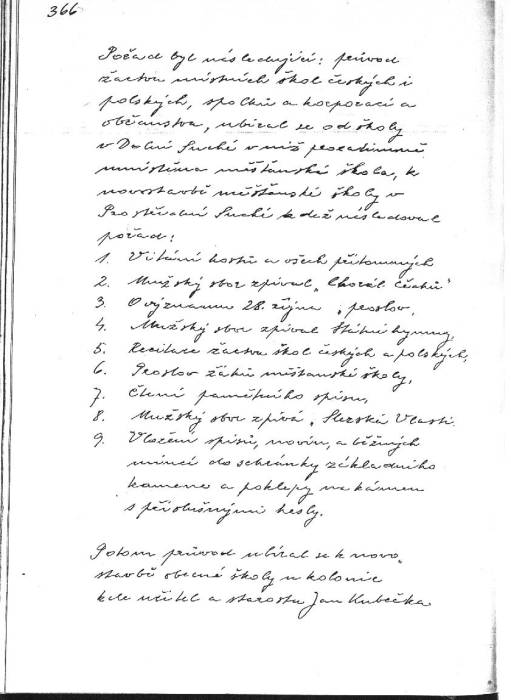 366
Pořad byl následující: průvod
žactva místních škol českých i
polských, spolků a korporací a
občanstva, ubíral se od školy
v Dolní Suché v níž prozatimně
umístěna měšťanská škola, k
novostavbě měšťanské školy v
Prostřední Suché kdež následoval
pořad:
1. Vítání hostů a všech přítomných
2. Mužský sbor zpíval „Chorál Čechů"
3. O významu 28. října, proslov,
4. Mužský sbor zpíval Státní hymny,
5. Recitace žactva škol českých a polských,
6. Proslov žáků měšťanské školy,
7. Čtení pamětního spisu,
8. Mužský sbor zpívá „Slezská Vlasti.
9. Vložení spisů, novin, a běžných
mincí do schránky základního
kamene a poklepy na kámen
s příslušnými hesly.
Potom průvod ubíral se k novo
stavbě obecné školy u kolonie
kde učitel a starosta Jan Kubečka